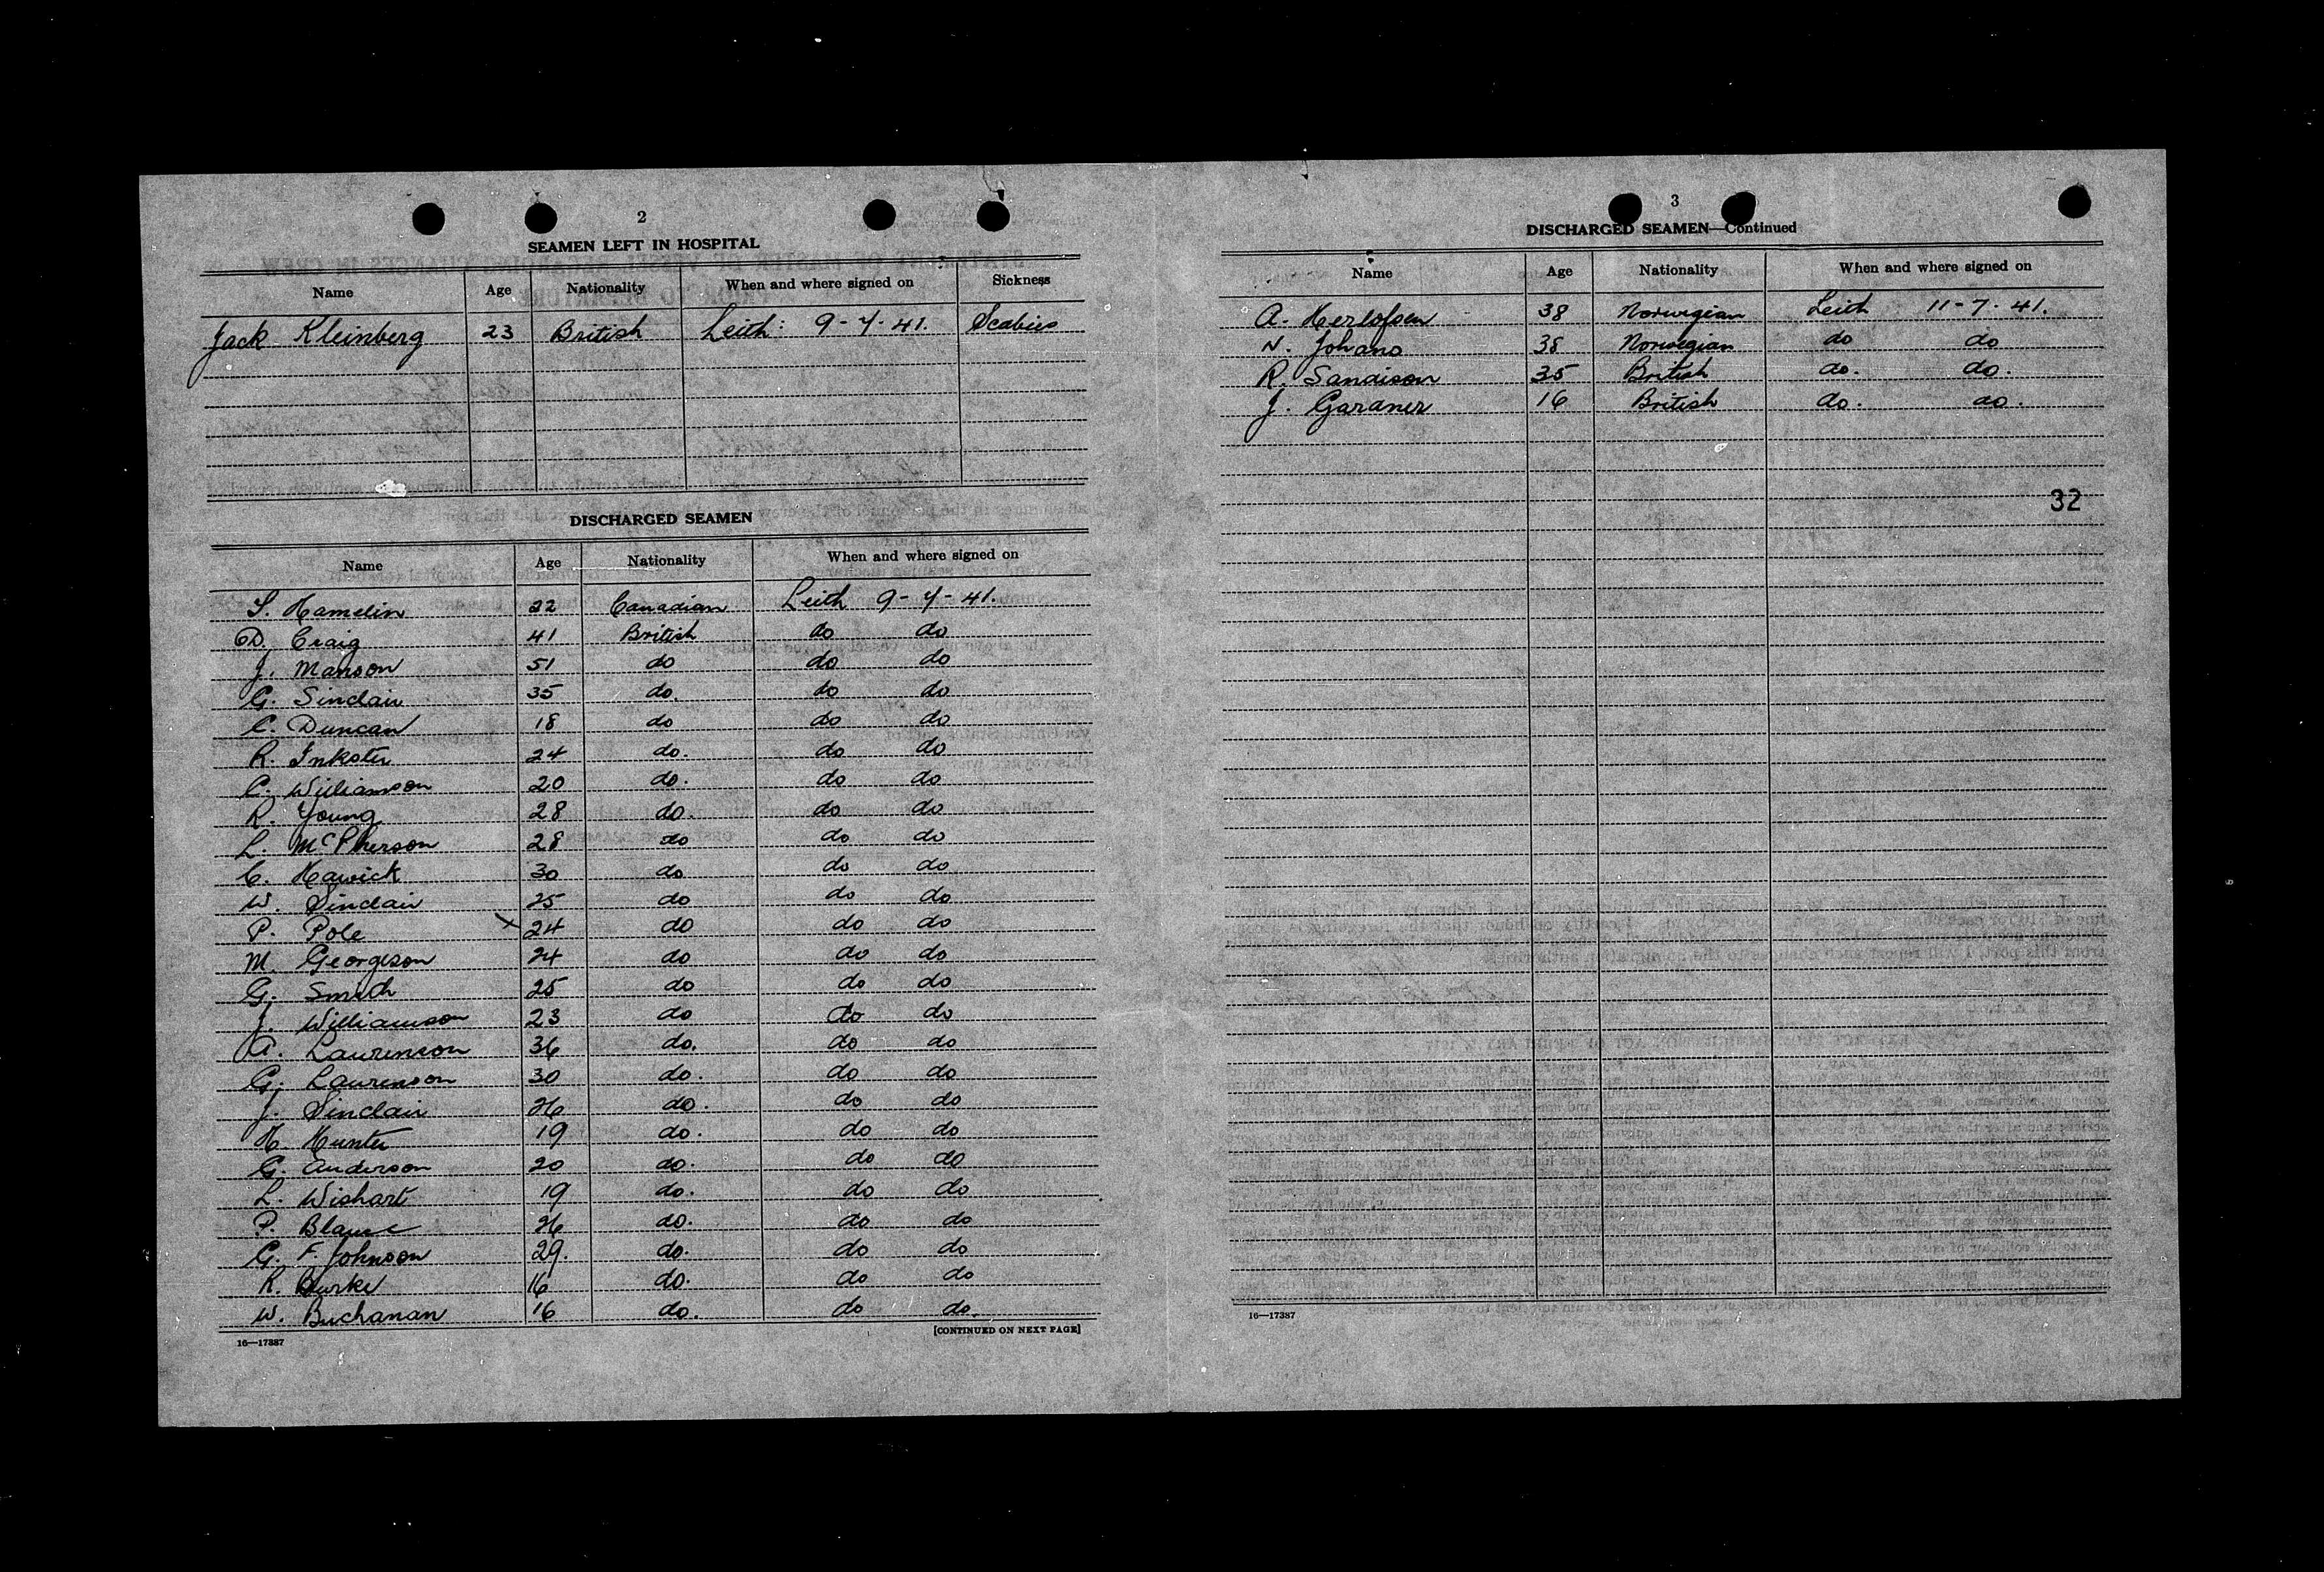 2
SEAMEN LEFT IN HOSPITAL
Name Age Nationality When and where signed on Sickness
Jack Kleinberg 23 British Leith: 9-7-41. Scabies
DISCHARGED SEAMEN
Name Age Nationality When and where signed on
S. Hamelin 22 Canadian Leith 9-7-41.
D. Craig 41 British do do
J. Manson 51 do do do
G. Sinclair 35 do. do do
C. Duncan 18 do do do
R. Inkster 24 do. do do
C. Williamson 20 do. do do
R. Young 28 do. do do
L. McPherson 28 do do do
C. Hawick 30 do do do
W. Sinclair 25 do do do
P. Pole 24 do do do
M. Georgeson 24 do do do
G. Smith 25 do do do
J. Williamson 23 do do do
A. Laurenson 36 do. do do
G. Laurenson 30 do. do do
J. Sinclair 26 do. do do
H. Hunter 19 do. do do
G. Anderson 20 do. do do
L. Wishart 19 do. do do
P. 26 do. do do
G. F. Johnson 29. do. do do
R. Burke 16 do. do do
W. Buchanan 16 do. do do.
16—17387 [CONTINUED ON NEXT PAGE]
3
DISCHARGED SEAMEN—Continued
Name Age Nationality When and where signed on
A. Herlofsen 38 Norwegian Leith 11-7-41.
N. Johans 38 Norwegian do do
R. Sandison 35 British do. do.
J. Gardner 16 British do. do.
32
16—17387